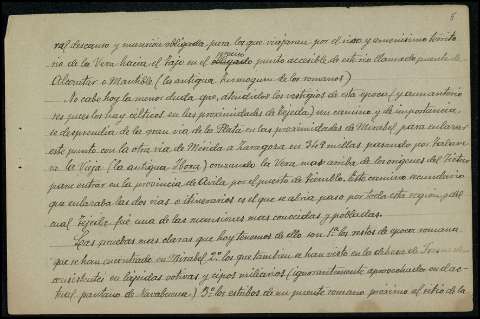 8
ral descanso y mansion obligada, para los que viajaran por el rico y amenisimo territo
rio de la Vera hacia el Tajo en el unico punto accesible de este rio llamado puente de
Alconetar o Mantible (la antigua Turmogum de los romanos)
No cabe hoy la menor duda que, atendidos los vestigios de esta epoca (y aun anterio
res pues los hay celticos en las proximidades de Tejeda) un camino y de importancia,
se desprendia de la gran via de la Plata en las proximidades de Mirabel para enlazar
este punto con la otra via de Mérida a Zaragoza en 348 millas pasando por Talave
ra la Vieja (la antigua Ebora) cruzando la Vera mas arriba de los origenes del Tietar
para entrar en la provincia de Avila por el puerto de Tiemblo. Este camino secundario
que enlazaba las dos vias o itinerarios es el que se abria paso por toda esta region, y del
cual Tejeda fué una de las mansiones mas conocidas y pobladas.
Las pruebas mas claras que hoy tenemos de ello son 1º los restos de epoca romana
que se han encontrado en Mirabel. 2º los que tambien se han visto en la dehesa de
consistentes en lápidas votivas y cipos miliarios (ignorantemente aprovechados en el ac
tual pantano de Navabuena) 3º los estribos de un puente romano próximo al sitio de la